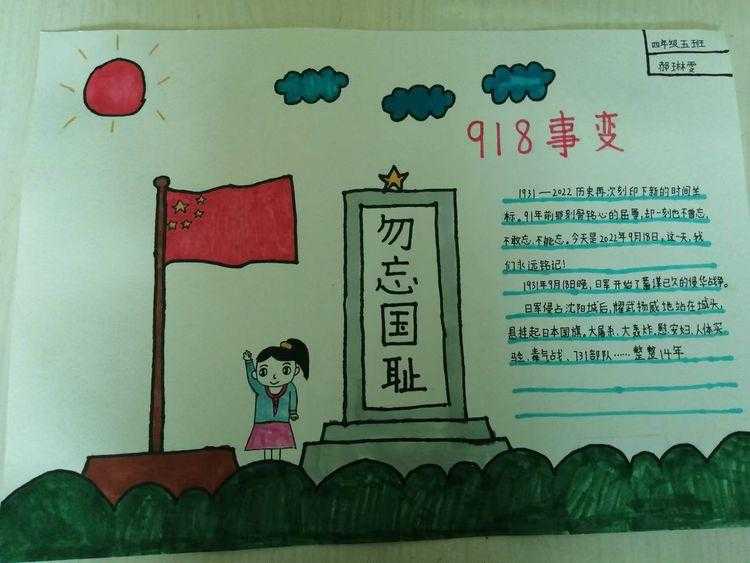 四年级五班
郝琳雯
918事变
勿忘国耻
1931—2022历史再次刻印下新的时间坐
标。91年前那刻骨铭心的屈辱,却一刻也不曾忘、
不敢忘、不能忘。今天是2022年9月18日。这一天,我
们永远铭记!
1931年9月18日晚,日军开始了蓄谋已久的侵华战争。
日军侵占沈阳城后,耀武扬威地站在城头,
悬挂起日本国旗。大屠杀、大轰炸、慰安妇、人体实
验、毒气战、731部队……整整14年